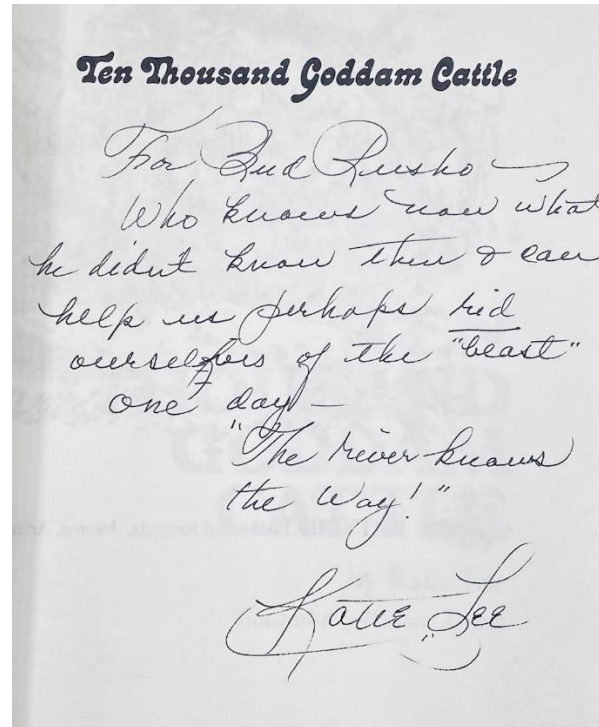 Ten Thousand Goddam Cattle
For Bud Rusho —
Who knows now what
he didn't know then & can
help us perhaps rid
ourselves of the "beast"
one day —
"The river knows
the way!"
Katie Lee